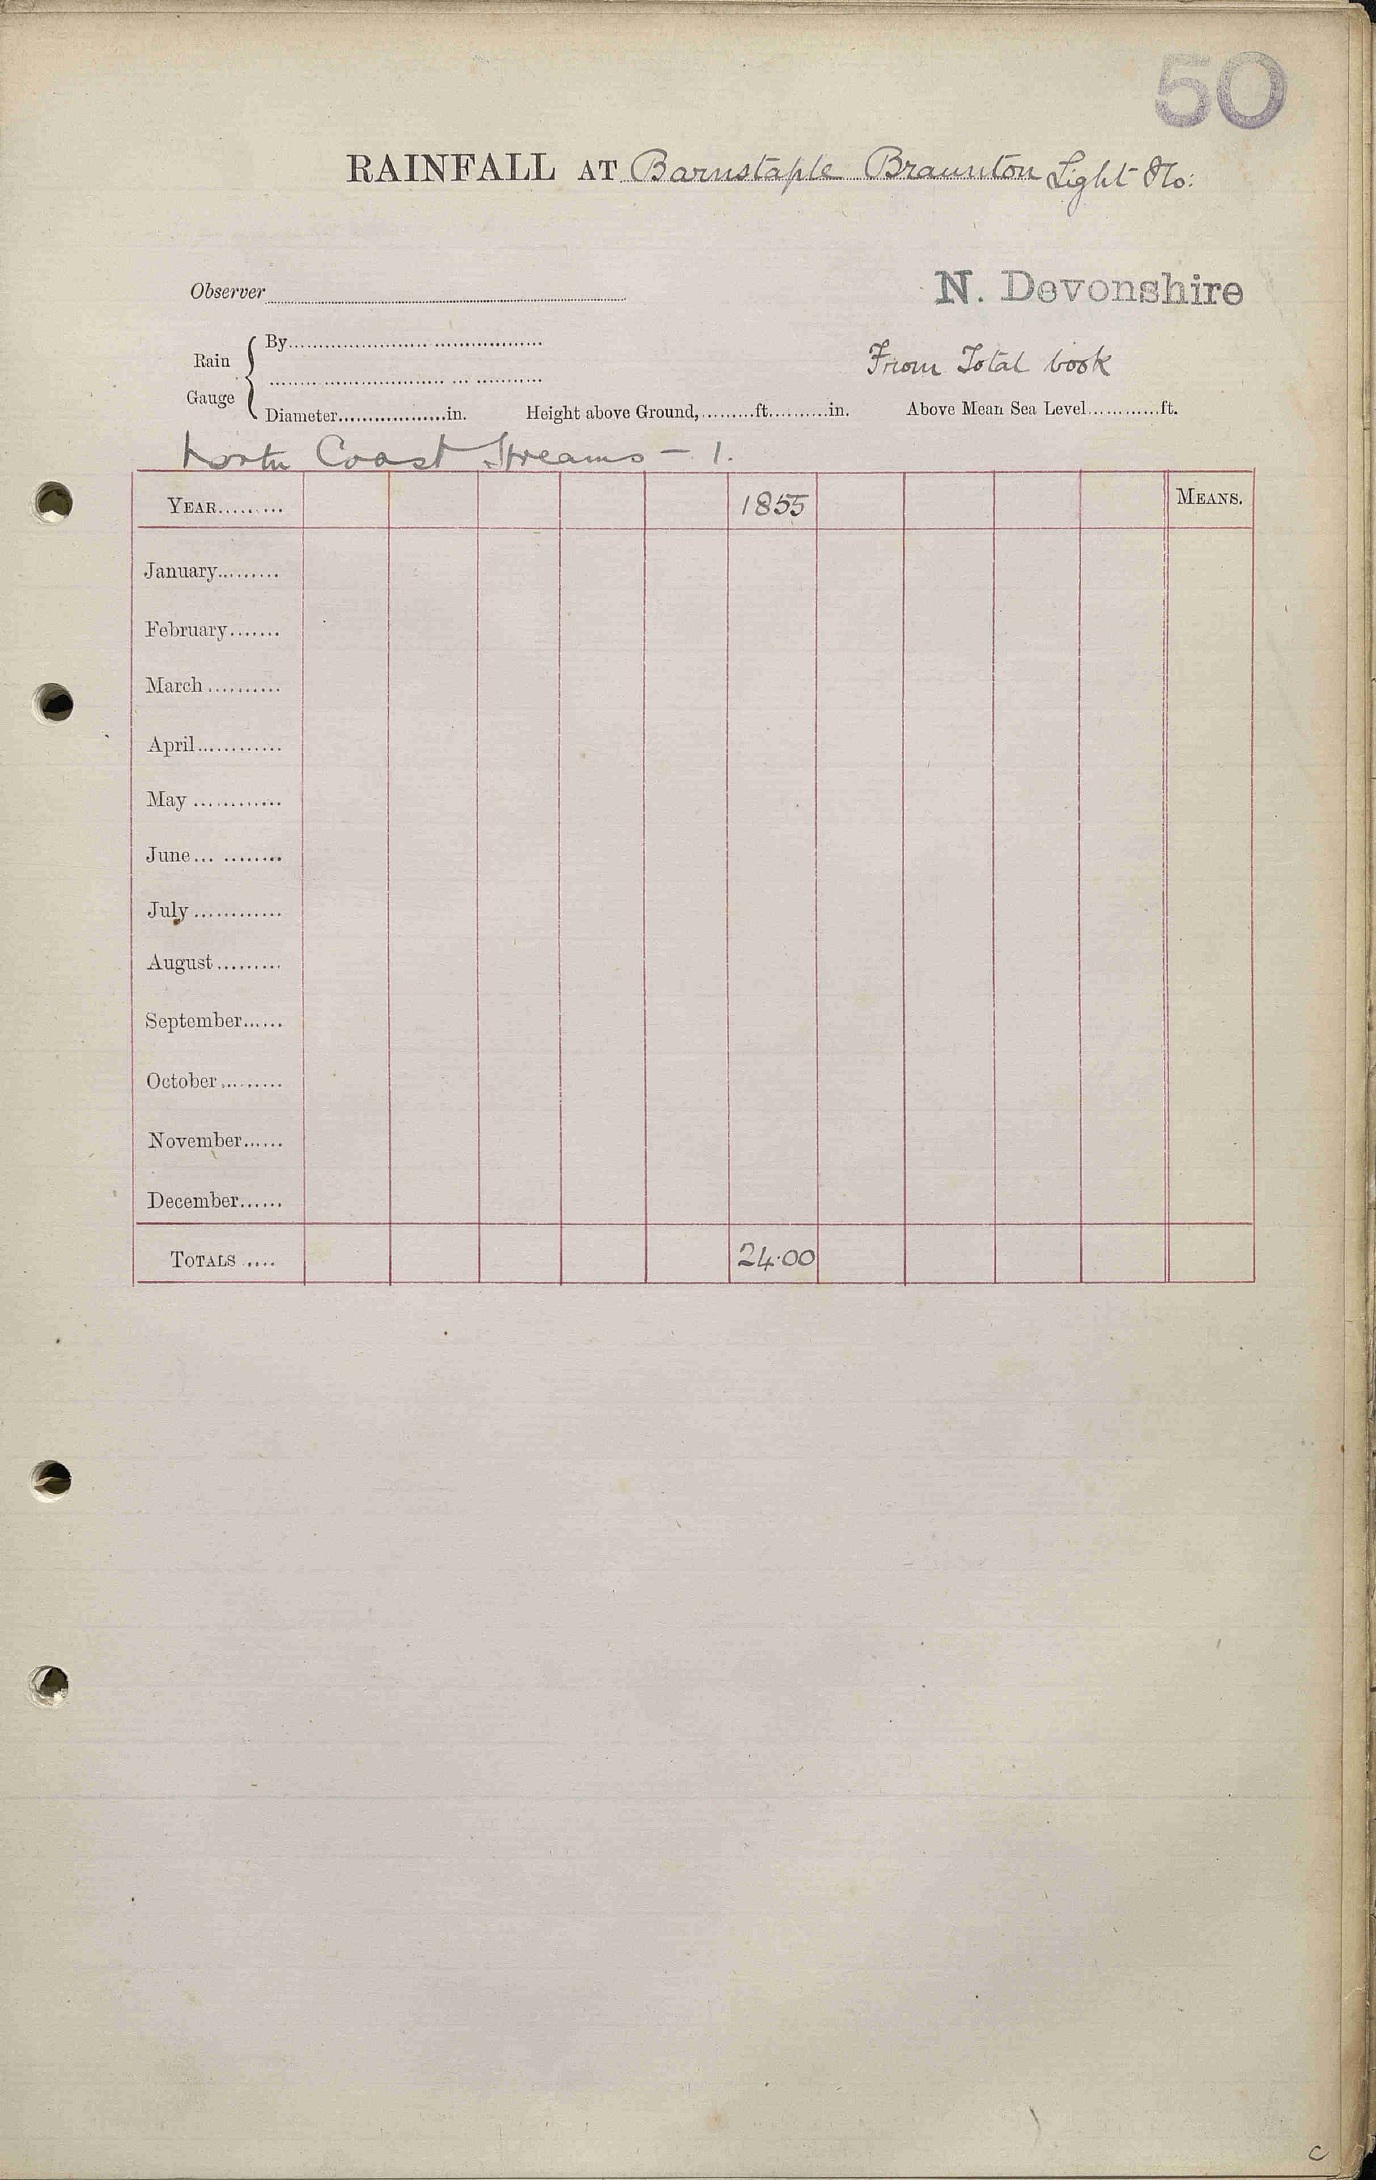 50
RAINFALL AT Barnstaple Braunton Light Ho:
Observer
N. Devonshire
Rain Gauge
By
From Total book
Diameter..................in. Height above Ground,.........ft..........in. Above Mean Sea Level............ft.
North Coast Streams - 1.
YEAR......... 1855 MEANS.
January.........
February.......
March..........
April............
May............
June............
July............
August.........
September......
October.........
November......
December......
TOTALS .... 24.00
C